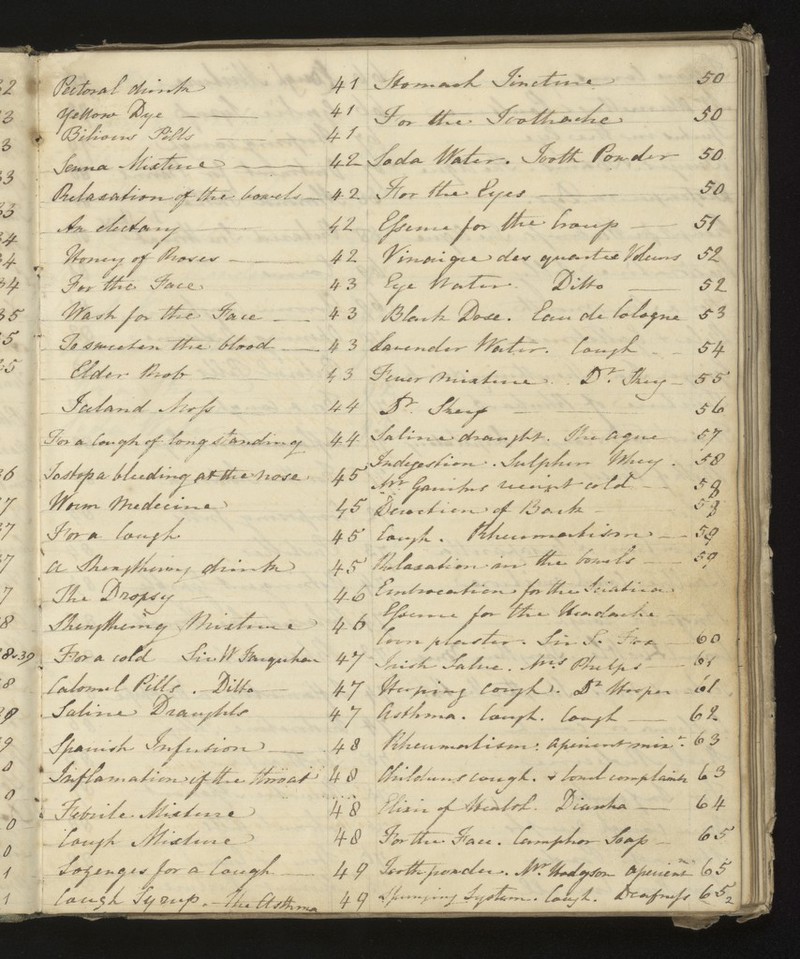 Pectoral drink 41
Yellow Dye 41
Bilious Pills 41
Senna Mixture 42
Relaxation of the bowels 42
An electary 42
Honey of Roses 42
For the Face 43
Wash for the Face 43
To sweeten the blood 43
Elder Rob 43
Iceland Moss 44
For a Cough of long standing 44
To stop a bleeding at the nose 45
Worm Medecine 45
For a Cough 45
A Strengthening drink 45
The Dropsy 46
Strengthening Mixture 46
For a cold Sir W Farquhar 47
Calomel Pills. Ditto 47
Saline Draughts 47
Spanish Infusion 48
Inflamation of the throat 48
Febrile Mixture 48
Cough Mixture 48
Lozenges for a Cough 49
Cough Syrup. The Asthma 49
Stomach Tincture 50
For the Toothache 50
Soda Water. Tooth Powder 50
For the Eyes 50
Essence for the Croup 51
Vinaigre des quartre Voleurs 52
Eye Water. Ditto 52
Black Dose. Eau de Cologne 53
Lavender Water. Cough 54
Fever mixture. Dr. 55
Dr. 56
Saline draught. The Ague 57
Indigestion. Sulphur Whey. 58
receipt cold 58
Decoction of Bark 58
Cough. Rheumatism 59
Relaxation in the bowels 59
Embrocation for the Sciatica
Essence for the Headache
Corn plaster. Sir 60
Irish Salve. Mrs Phelps 61
Hooping cough. Dr Hooper 61
Asthma. Cough. Cough 62
Rheumatism. Aperient mixr. 63
Childrens cough. & bowel complaints 63
Elixir of Health. Diarrha 64
For the Face. Camphor Soap 65
Tooth powder. Mr Hodgson aperient 65
Spunging System. Cough. Deafness 65